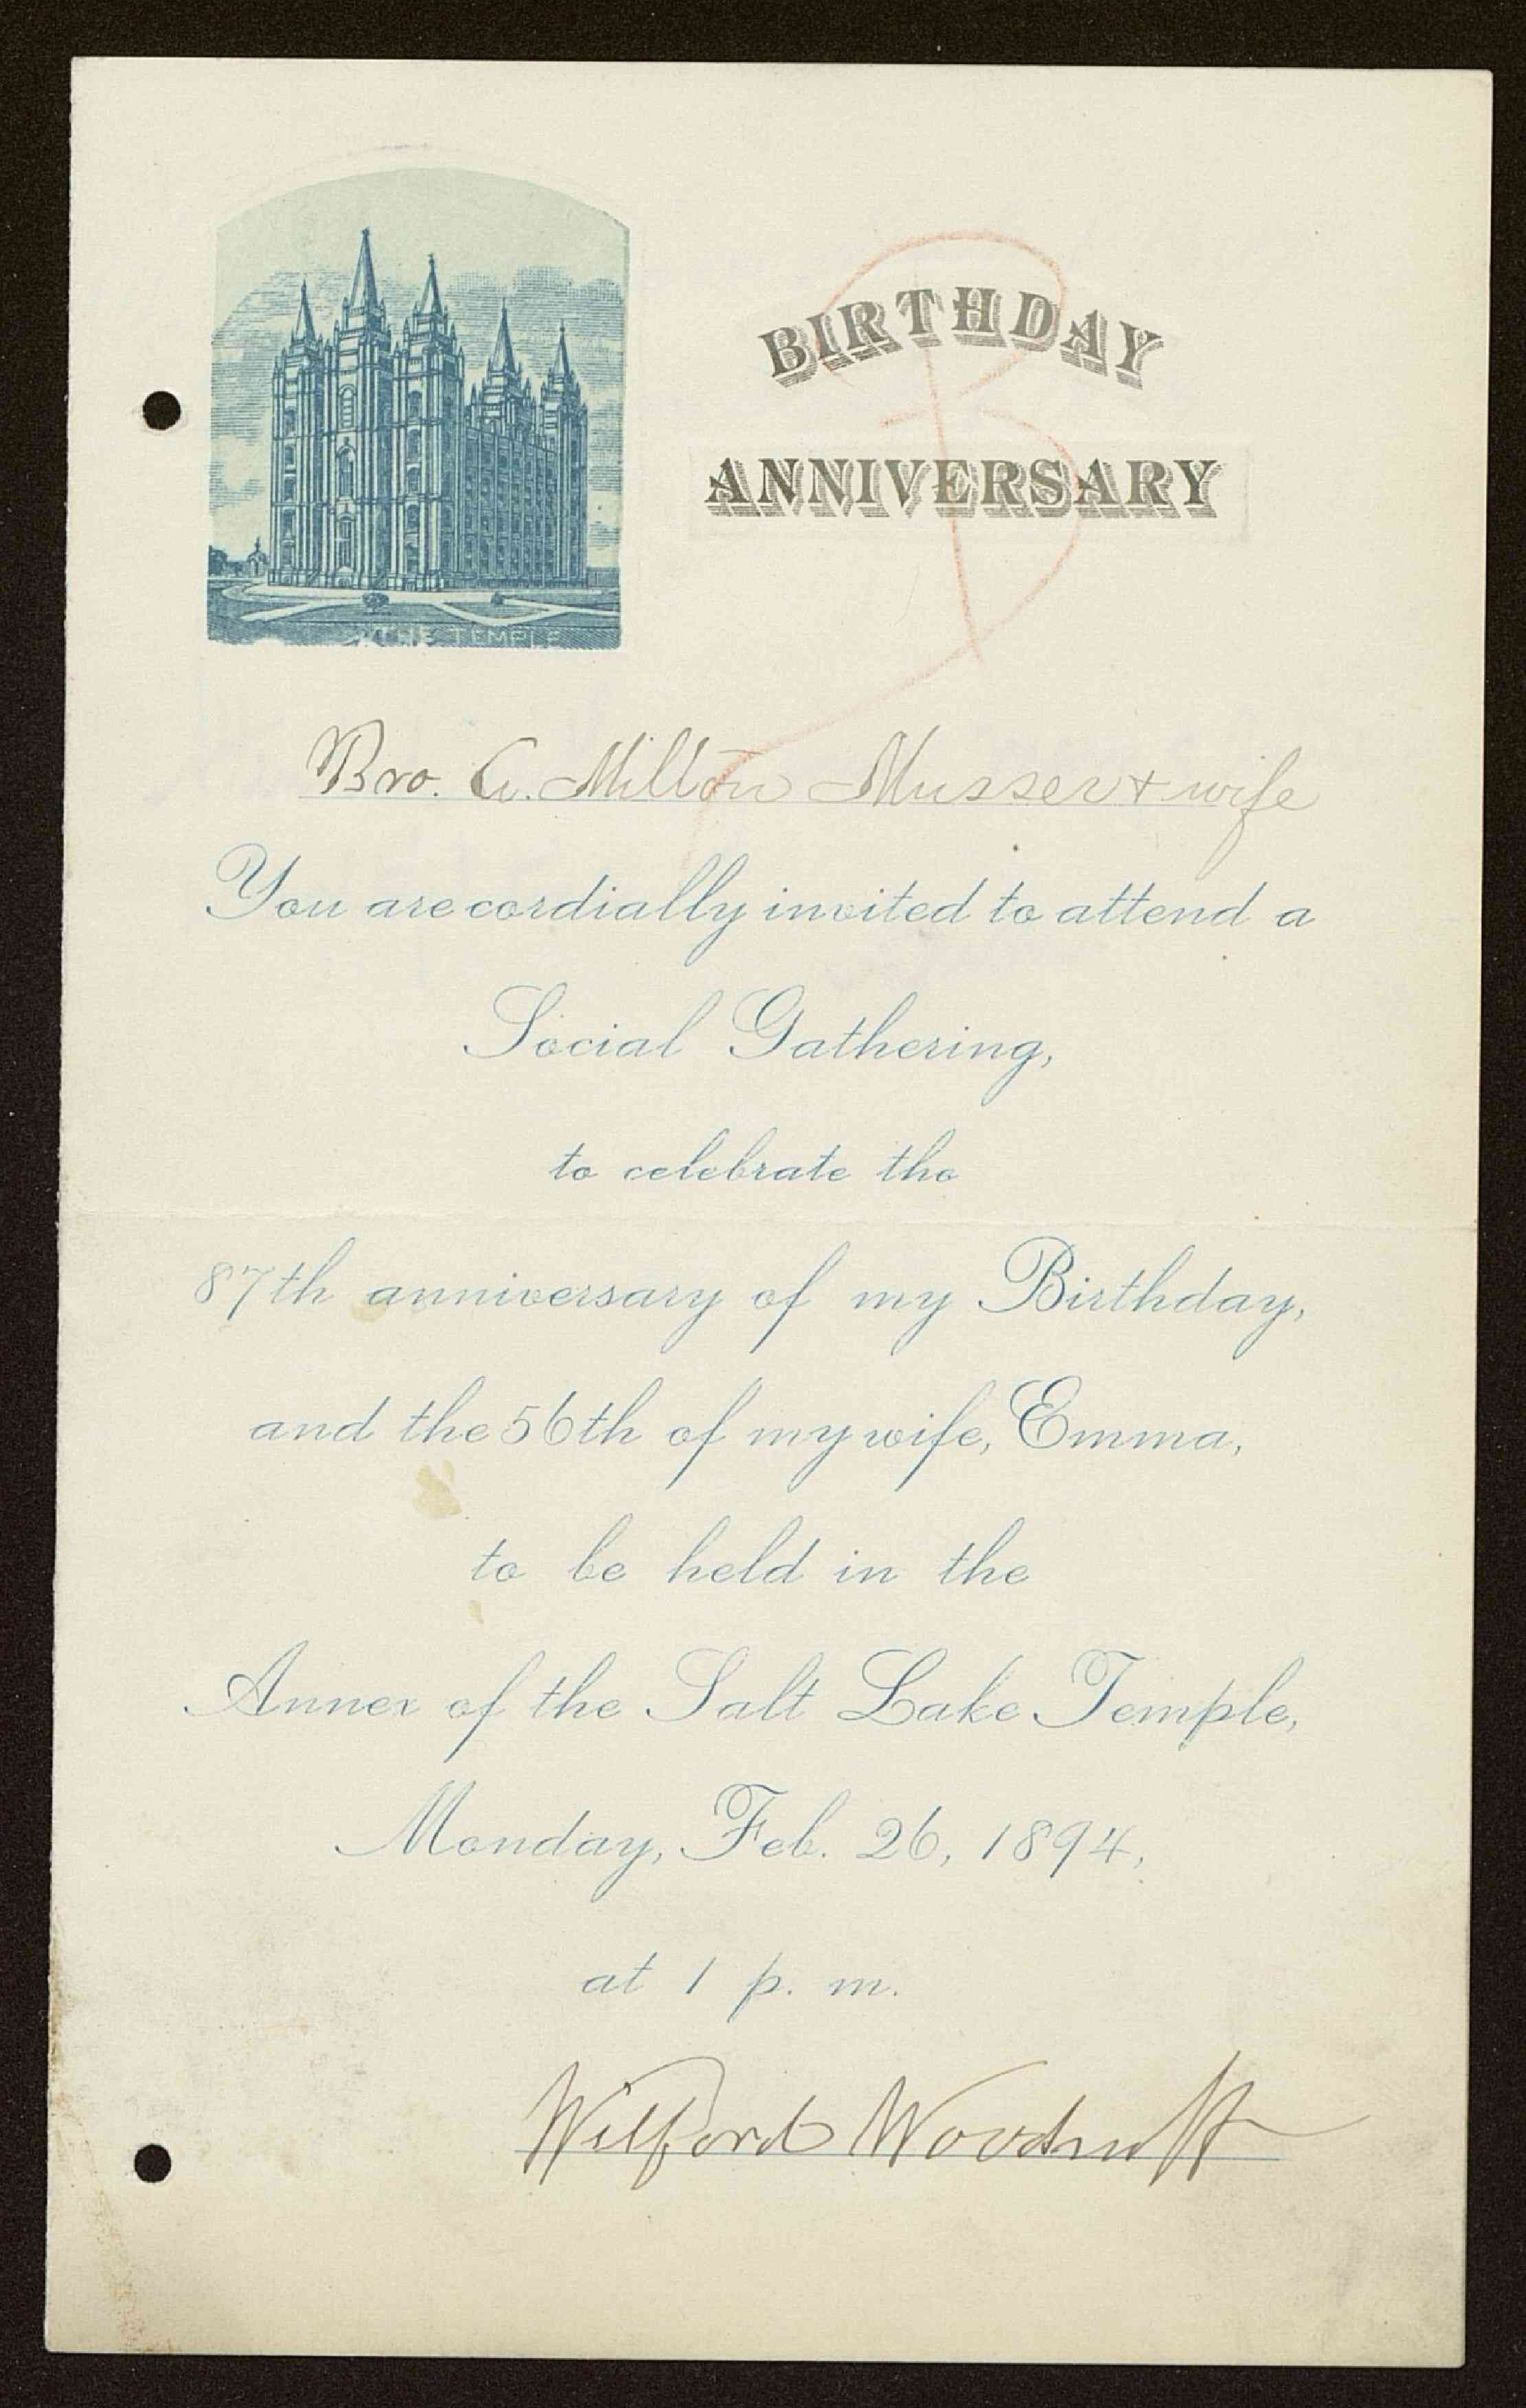 THE TEMPLE
BIRTHDAY
ANNIVERSARY
Bro. A. Milton Musser & wife
You are cordially invited to attend a
Social Gathering,
to celebrate the
87th anniversary of my Birthday,
and the 56th of my wife, Emma,
to be held in the
Annex of the Salt Lake Temple,
Monday, Feb. 26, 1894,
at 1 p. m.
Wilford Woodruff